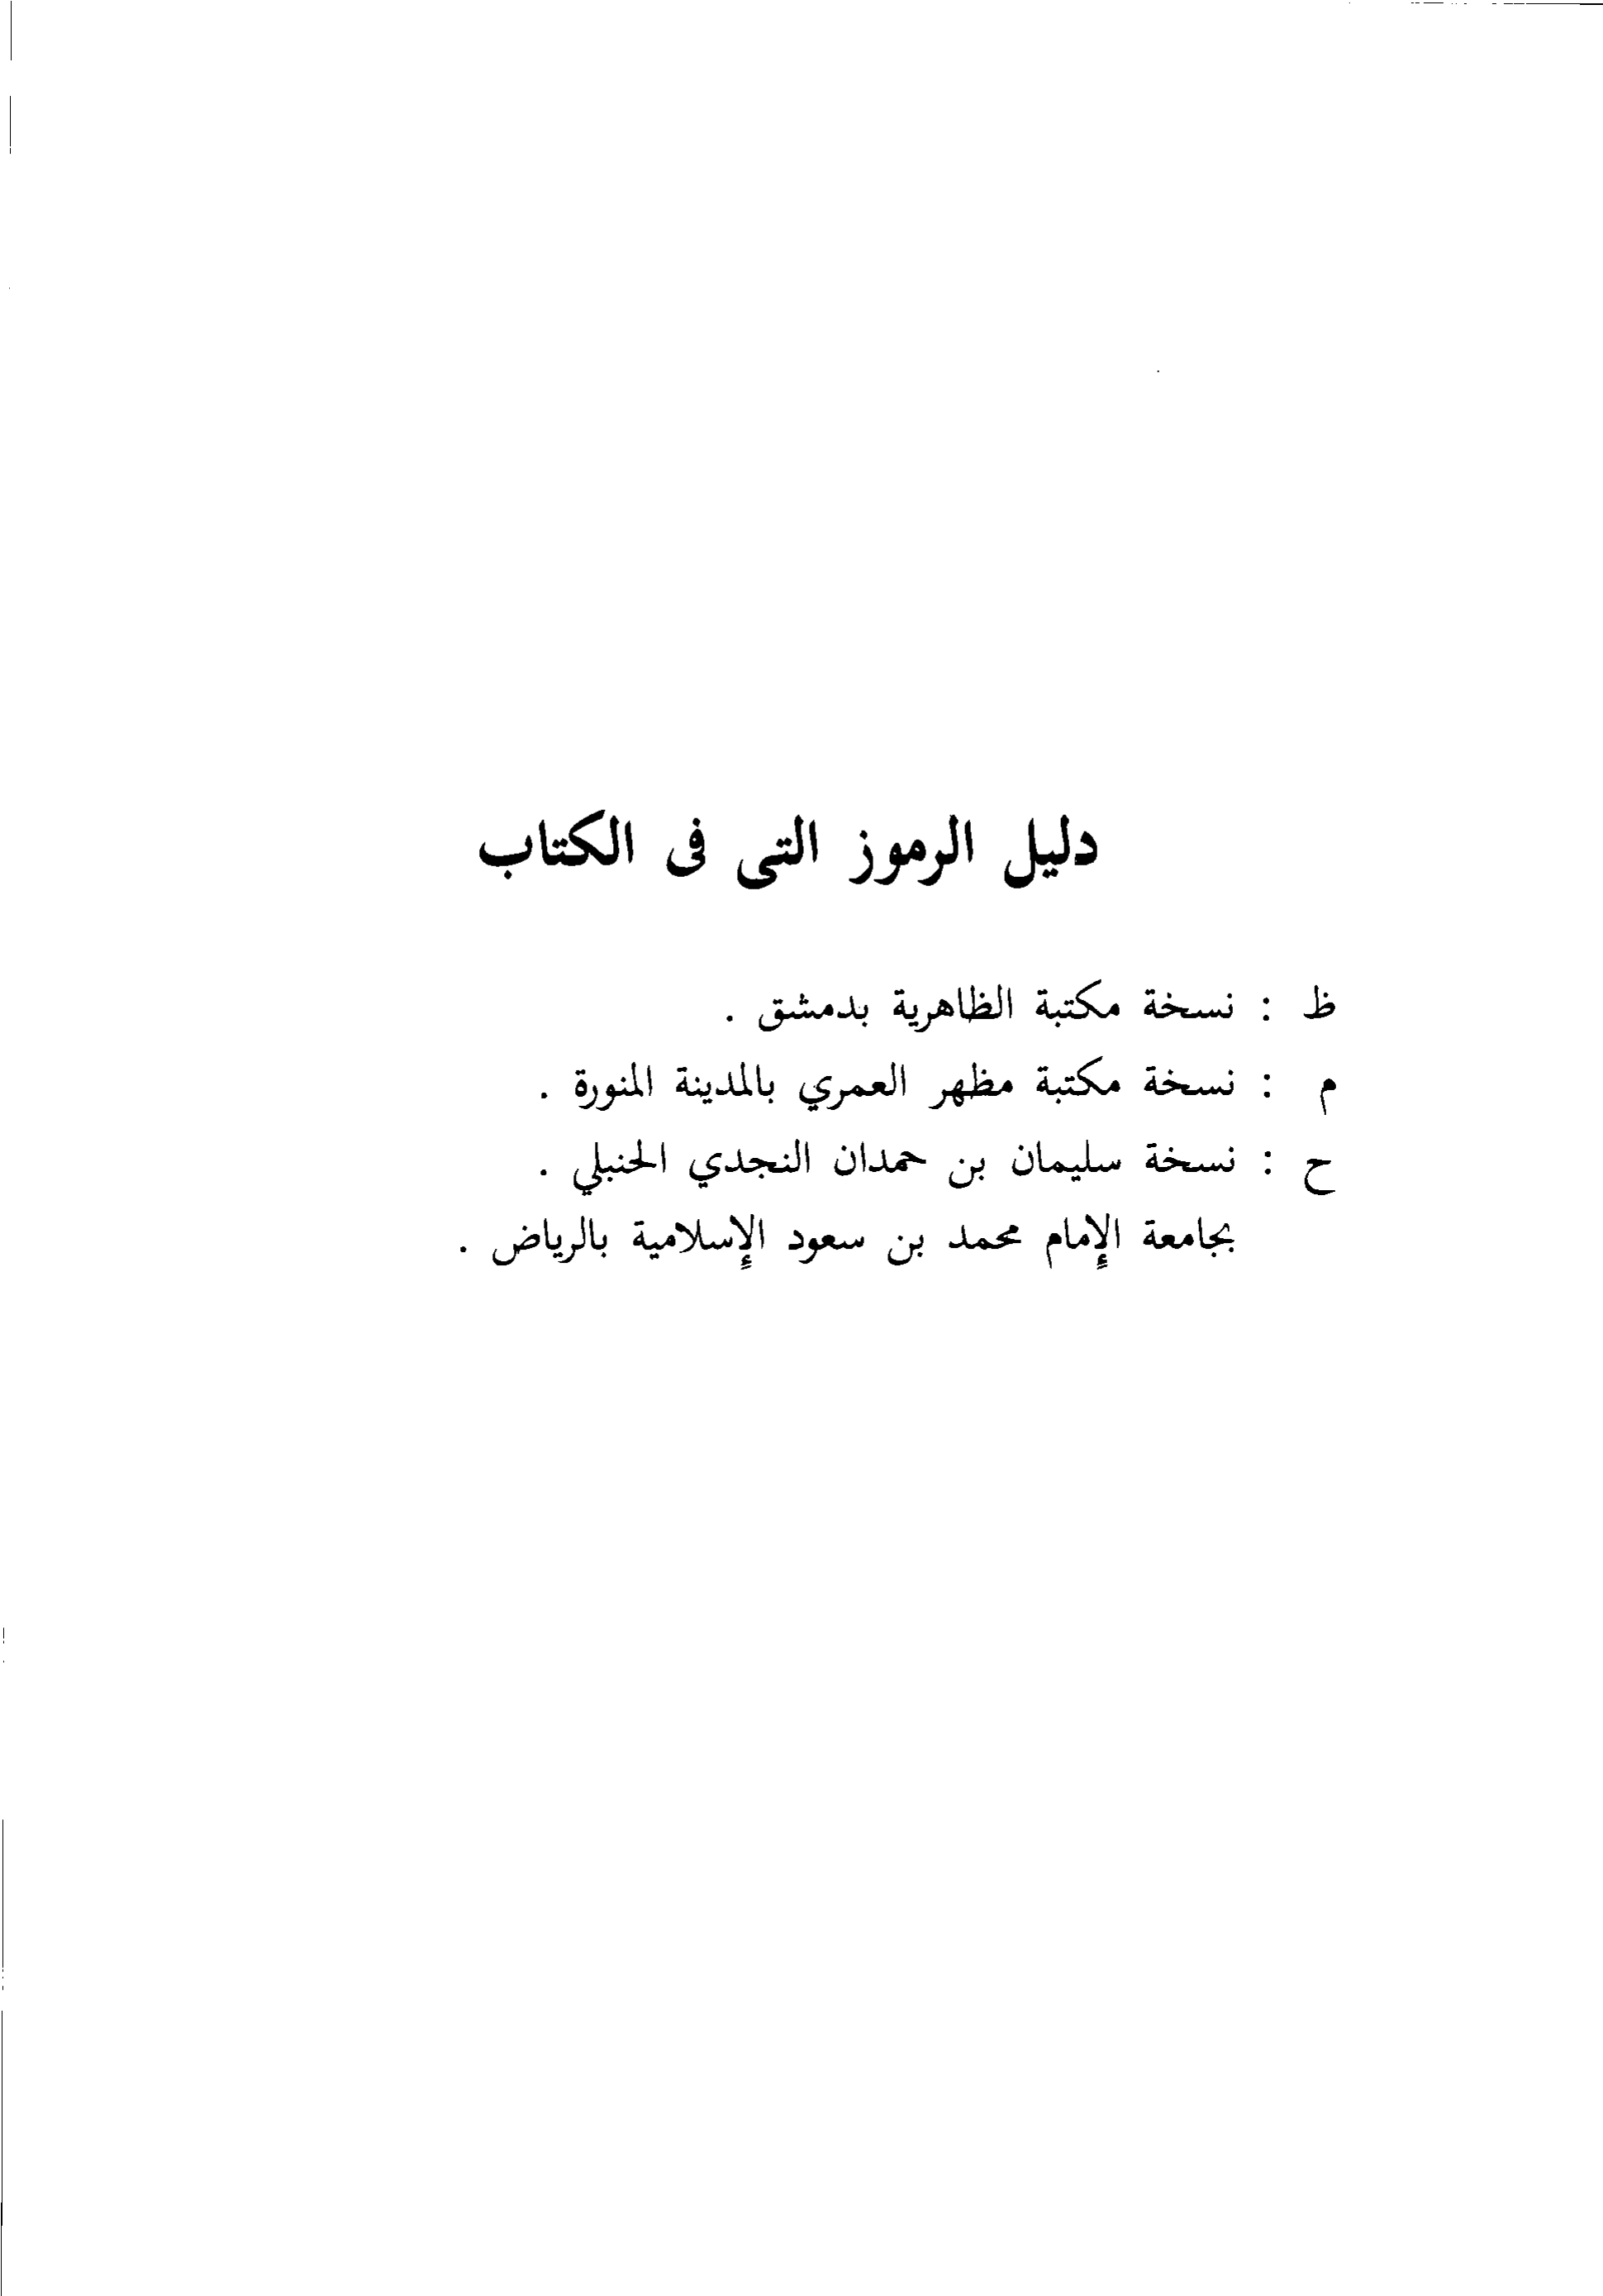 دليل الرموز التى فى الكتاب
ظ : نسخة مكتبة الظاهرية بدمشق .
م : نسخة مكتبة مظهر العمري بالمدينة المنورة .
ح : نسخة سليمان بن حمدان النجدي الحنبلي .
بجامعة الإمام محمد بن سعود الإسلامية بالرياض .